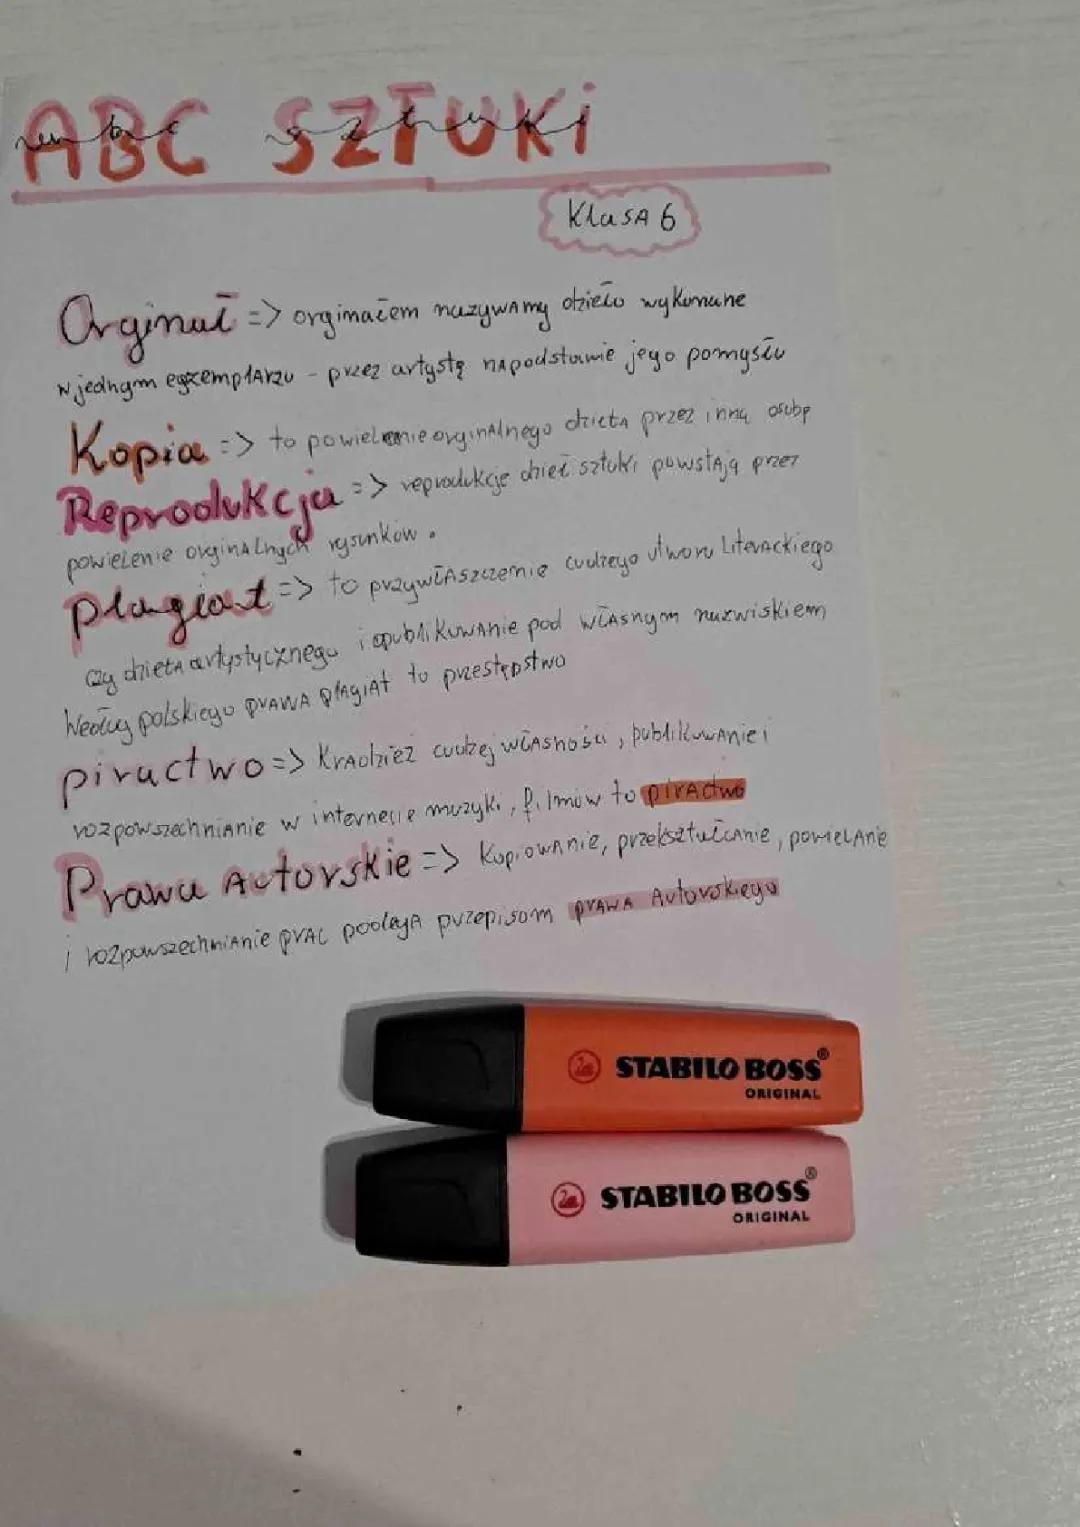 ABC SZTUKi
abc sztuki
Klasa 6
Orginał => orginałem nazywamy dzieło wykonane
w jednym egzemplarzu - przez artystę na podstawie jego pomysłu
Kopia => to powielenie orginalnego dzieła przez inną osobę
Reprodukcja => reprodukcje dzieł sztuki powstają przez
powielenie orginalnych rysunków.
plagiat => to przywłaszczenie cudzego utworu literackiego
czy dzieła artystycznego i opublikowanie pod własnym nazwiskiem
Według polskiego prawa plagiat to przestępstwo
piractwo => Kradzież cudzej własności, publikowanie i
rozpowszechnianie w internecie muzyki, filmów to piractwo
Prawa Autorskie => Kopiowanie, przekształcanie, powielanie
i rozpowszechnianie prac podlega przepisom prawa Autorskiego
STABILO BOSS®
ORIGINAL
STABILO BOSS®
ORIGINAL